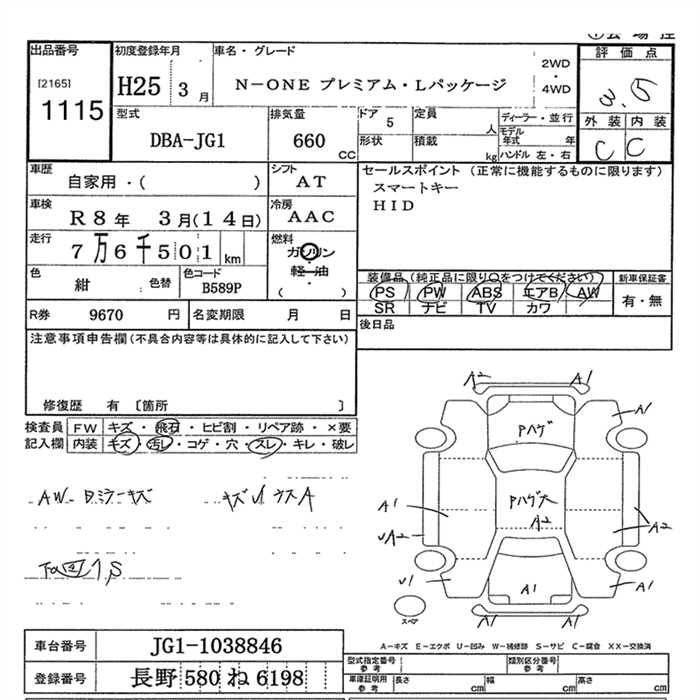 出品番号 初度登録年月 車名・グレード 評価点
[2165] H25 3月 N-ONE プレミアム・Lパッケージ 2WD・4WD 3.5
1115
型式 排気量 ドア 定員 ディーラー・並行 外装 内装
DBA-JG1 660 CC 5 人 モデル年式 年 C C
形状 積載 kg ハンドル 左・右
車歴 シフト セールスポイント(正常に機能するものに限ります)
自家用・( ) AT スマートキー
車検 冷房 HID
R8年 3月(14日) AAC
走行 燃料
7万6千501km ガソリン・軽油
( )
色 色替 色コード 装備品(純正品に限り○をつけてください) 新車保証書
紺 B589P PS PW ABS エアB AW 有・無
SR ナビ TV カワ
R券 9670 円 名変期限 月 日 後日品
注意事項申告欄(不具合内容等は具体的に記入して下さい)
修復歴 有 〔箇所 〕
検査員記入欄 FW キズ・飛石・ヒビ割・リペア跡・×要
内装 キズ・汚レ・コゲ・穴・スレ・キレ・破レ
A2 A1
A1
Pハゲ
AW
キズ
A1 Pハゲ大 A2
A2
A2
下回リS
A1 A1
A1 A1
スペア
A-キズ E-エクボ U-凹み W-補修跡 S-サビ C-腐食 XX-交換済
車台番号 JG1-1038846 型式指定番号 参考 類別区分番号 参考
登録番号 長野 580 ね 6198 車庫証明用 参考 長さ cm 幅 cm 高さ cm